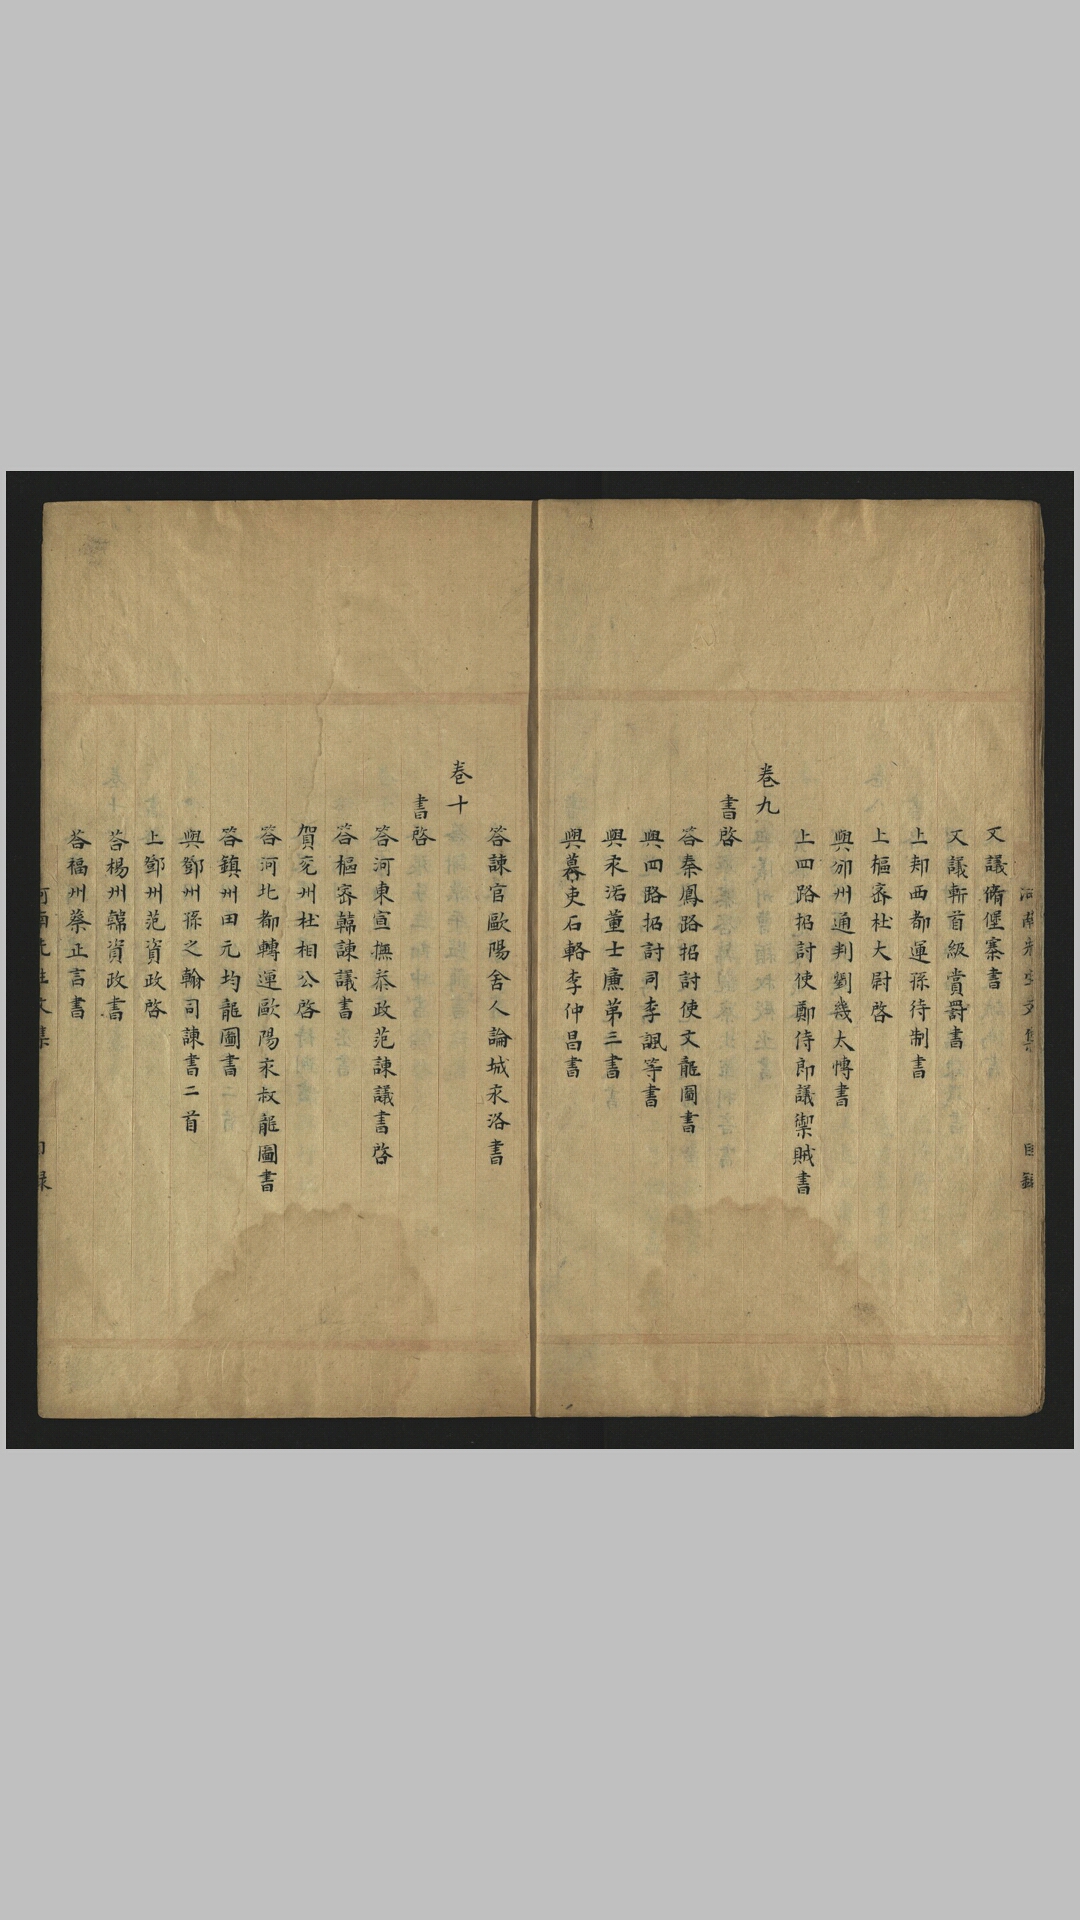 又議脩堡寨書
又議斬首級賞罰書
上郟西都運孫待制書
上樞宻杜大尉啓
與邠州通判劉幾太愽書
上四路招討使鄭侍郎議禦賊書
卷九
書啓
答秦鳳路招討使文龍圖書
與四路招討司李諷等書
與水洛董士廉第三書
與幕吏石輅李仲昌書
答諫官歐陽舍人論城水洛書
卷十
書啓
答河東宣撫叅政范諫議書啓
答樞宻韓諫議書
賀兖州杜相公啓
答河北都轉運歐陽永叔龍圖書
答鎮州田元均龍圖書
與鄧州孫之翰司諫書二首
上鄧州范資政啓
荅楊州韓資政書
荅福州蔡正言書